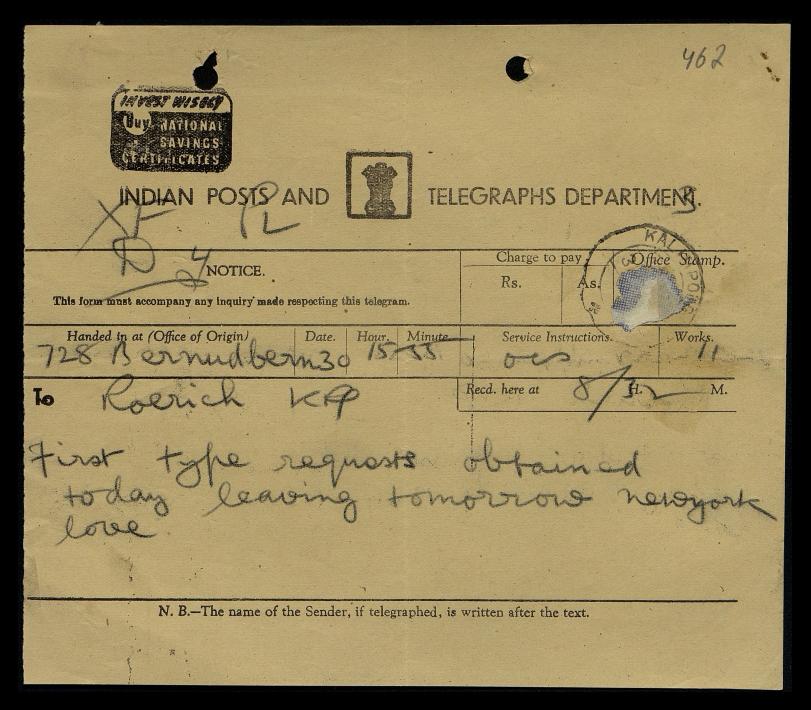 462
INVEST WISELY
Buy NATIONAL
SAVINGS
CERTIFICATES
INDIAN POSTS AND TELEGRAPHS DEPARTMENT.
XF PL
NOTICE.
Charge to pay. Office Stamp.
Rs. As.
This form must accompany any inquiry made respecting this telegram.
Handed in at (Office of Origin) Date. Hour. Minute. Service Instructions. Works.
728 30 15-55 11
To Roerich KP
Recd. here at 8/32 H. M.
First type requests obtained
today leaving tomorrow newyork
love
N. B.—The name of the Sender, if telegraphed, is written after the text.